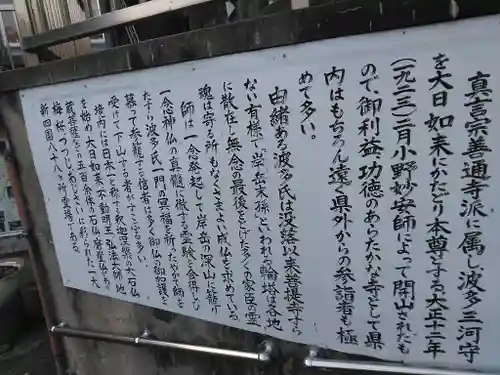 真言宗善通寺派に属し波多三河守
を大日如来にかたどり本尊とする、大正十二年
(一九二三)二月小野妙安師によって開山されたも
ので、御利益功徳のあらたかな寺として県
内はもちろん遠く県外からの参詣者も極
めて多い。
由緒ある波多氏は没落以来菩提寺すら
ない有様で、岸岳末孫といわれる輪塔は各地
に散在し無念の最後をとげた多くの家臣の霊
魂は寄る所もなくさまよい成仏を求めている。
師は一念発起して岸岳の深山に籠り
一念神仏の真髄に徹する霊験を会得し
たすら波多氏一門の冥福を祈った、やがて師を
慕って参籠する信者は多く御仏の御加護を
受けて下山する者がすこぶる多い。
境内には日本一と称する釈迦涅槃の大石仏
を始め、大日如来、不動明王、弘法大師、地
蔵菩薩など五百余体の石仏、磨崖仏があり
梅、桜、つつじ、あじさいに彩られた一大
新四国八十八ヶ所霊場である。